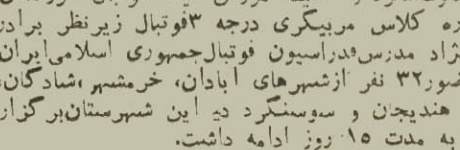 ره کلاس مربیگری درجه ۳فوتبال زیرنظر برادر
نژاد مدرس‌فدراسیون فوتبال‌جمهوری اسلامی‌ایران
ضور۳۲ نفر ازشهرهای آبادان، خرمشهر ،شادگان،
هندیجان و سوسنگرد در این شهرستان‌برگزار
به مدت ۱۵ روز ادامه داشت.